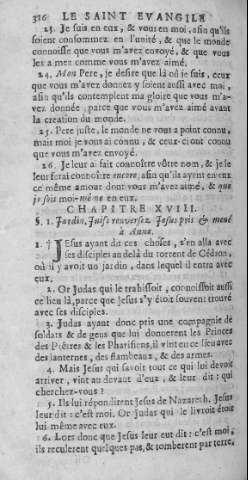 316 LE SAINT EVANGILE
23. Je suis en eux, & vous en moi, afin qu'ils
soient consommez en l'unité, & que le monde
connoisse que vous m'avez envoyé, & que vous
les aimez comme vous m'avez aimé.
24. Mon Pere, je desire que là où je suis, ceux
que vous m'avez donnez y soient aussi avec moi,
afin qu'ils contemplent ma gloire que vous m'a-
vez donnée, parce que vous m'avez aimé avant
la creation du monde.
25. Pere juste, le monde ne vous a point connu,
mais moi je vous ai connu, & ceux-ci ont connu
que vous m'avez envoyé.
26. Je leur ai fait connoître vôtre nom, & je le
leur ferai connoître encore, afin qu'ils ayent en eux
ce même amour dont vous m'avez aimé, & que
je sois moi-même en eux.
CHAPITRE XVIII.
§. 1. Jardin. Juifs renversez. Jesus pris & mené
à Anne.
1. † Jesus ayant dit ces choses, s'en alla avec
ses disciples au delà du torrent de Cédron,
où il y avoit un jardin, dans lequel il entra avec
eux.
2. Or Judas qui le trahissoit, connoissoit aussi
ce lieu là, parce que Jesus s'y étoit souvent trouvé
avec ses disciples.
3. Judas ayant donc pris une compagnie de
soldats & de gens que lui donnerent les Princes
des Prêtres & les Pharisiens, il vint en ce lieu avec
des lanternes, des flambeaux, & des armes.
4. Mais Jesus qui savoit tout ce qui lui devoit
arriver, vint au devant d'eux, & leur dit: qui
cherchez-vous?
5. Ils lui répondirent Jesus de Nazareth. Jesus
leur dit: c'est moi. Or Judas qui le livroit étoit
lui même avec eux.
6. Lors donc que Jesus leur eut dit: c'est moi,
ils reculerent quelques pas, & tomberent par terre.